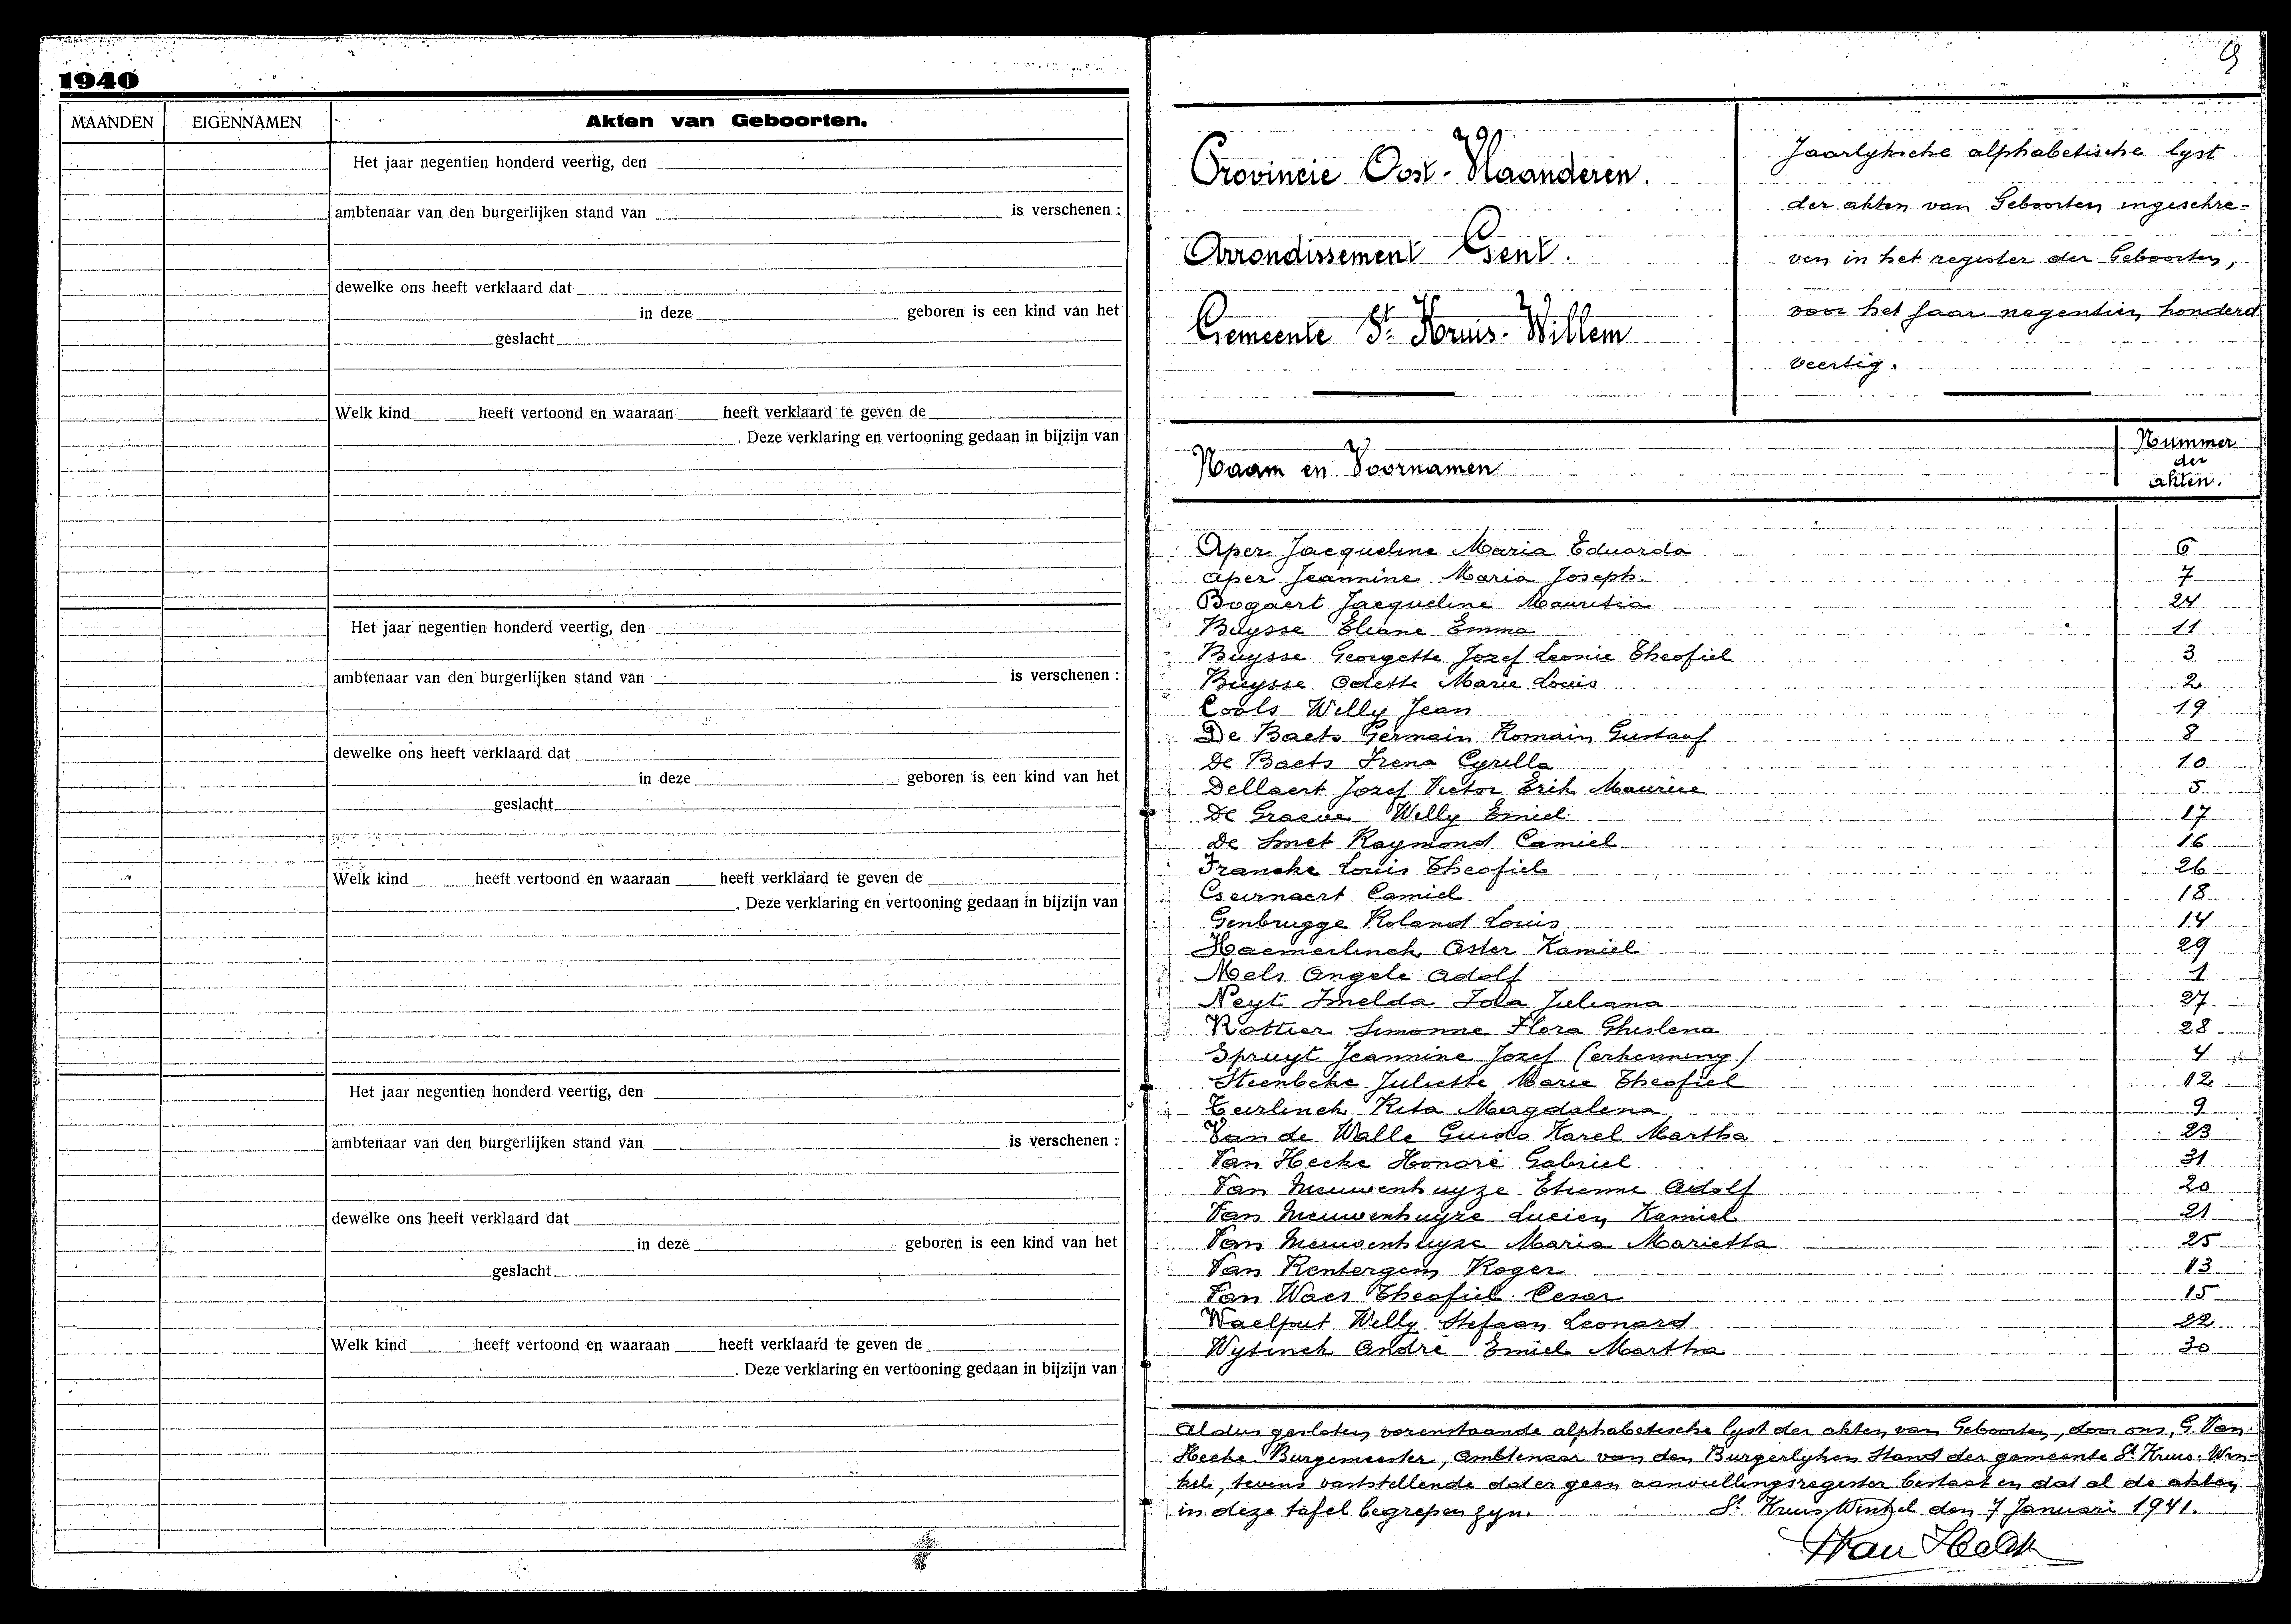 1940
MAANDEN
EIGENNAMEN
Akten van Geboorten.
Het jaar negentien honderd veertig, den
ambtenaar van den burgerlijken stand van is verschenen :
dewelke ons heeft verklaard dat
in deze geboren is een kind van het
geslacht
Welk kind heeft vertoond en waaraan heeft verklaard te geven de
. Deze verklaring en vertooning gedaan in bijzijn van
Het jaar negentien honderd veertig, den
ambtenaar van den burgerlijken stand van is verschenen :
dewelke ons heeft verklaard dat
in deze geboren is een kind van het
geslacht
Welk kind heeft vertoond en waaraan heeft verklaard te geven de
. Deze verklaring en vertooning gedaan in bijzijn van
Het jaar negentien honderd veertig, den
ambtenaar van den burgerlijken stand van is verschenen :
dewelke ons heeft verklaard dat
in deze geboren is een kind van het
geslacht
Welk kind heeft vertoond en waaraan heeft verklaard te geven de
. Deze verklaring en vertooning gedaan in bijzijn van
9
Provincie Oost-Vlaanderen.
Arrondissement Gent.
Gemeente St Kruis-Willem
Jaarlyksche alphabetische lyst
der akten van Geboorten ingeschre-
ven in het register der Geboorten,
voor het jaar negentien honderd
veertig.
Naam en Voornamen
Nummer
der
akten.
Aper Jacqueline Maria Eduarda 6
Aper Jeannine Maria Joseph. 7
Bogaert Jacqueline Mauritia 24
Buysse Eliane Emma 11
Buysse Georgette Jozef Leonie Theofiel 3
Buysse Odette Marie Louis 2
Cools Willy Jean 19
De Baets Germain Romain Gustaaf 8
De Baets Irena Cyrilla 10
Dellaert Jozef Victor Erik Maurice 5
De Graeve Willy Emiel 17
De Smet Raymond Camiel 16
Francke Louis Theofiel 26
Camiel 18
Genbrugge Roland Louis 14
Haemerlinck Oster Kamiel 29
Mels Angele Adolf 1
Neyt Imelda Iola Juliana 27
Rottier Simonne Flora Ghislena 28
Spruyt Jeannine Jozef (erkenning) 4
Steenbeke Juliette Marie Theofiel 12
Teirlinck Rita Magdalena 9
Van de Walle Guido Karel Martha 23
Van Hecke Honoré Gabriel 31
Van Nieuwenhuyze Etienne Adolf 20
Van Nieuwenhuyze Lucien Kamiel 21
Van Nieuwenhuyze Maria Marietta 25
Van Rentergem Roger 13
Van Waes Theofiel Cesar 15
Waelput Willy Stefaan Leonard 22
Wytinck André Emiel Martha 30
Aldus gesloten vorenstaande alphabetische lyst der akten van Geboorten, door ons, G. Van
Hecke Burgemeester, Ambtenaar van den Burgerlyken Stand der gemeente St Kruis-Win-
kel, tevens vaststellende dat er geen aanvullingsregister bestaat en dat al de akten
in deze tafel begrepen zyn. St Kruis Winkel den 7 Januari 1941.